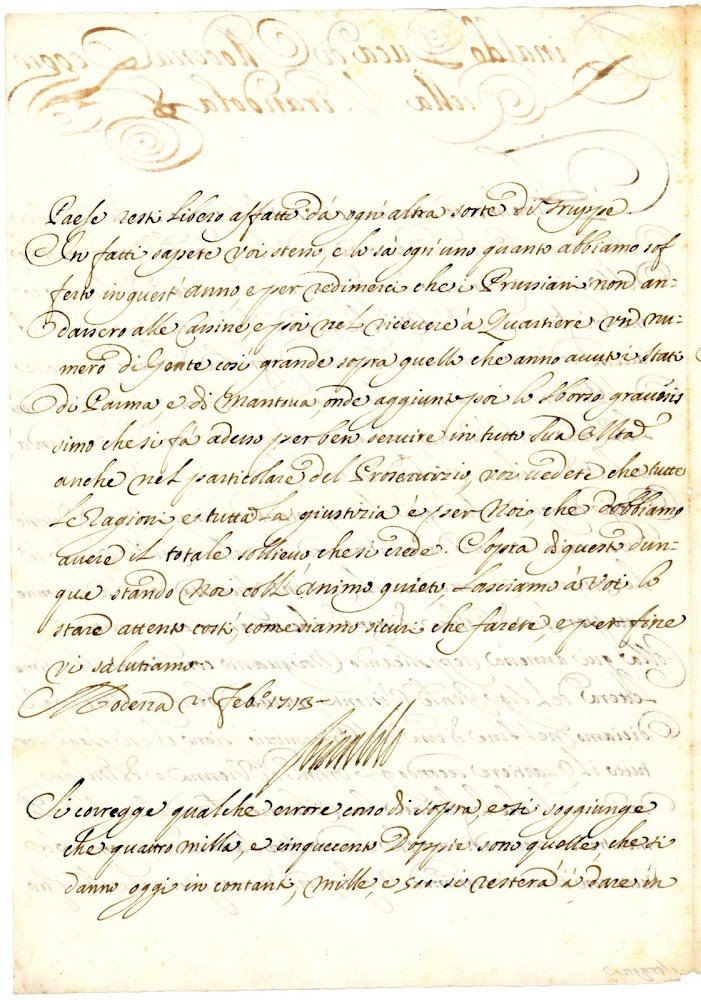 Paese resti libero affatto dà ogn'altra sorte di Truppe.
In fatti sapete voi stessi e lo sà ogn'uno quanto abbiamo sof
ferto in quest'anno e per redimerci che i Prussiani non an-
dassero alle Cassine e poi nel ricevere à Quartiere un nu-
mero di Gente così grande sopra quello che anno avuti i Stati
di Parma e di Mantova, onde aggiunto poi lo sborso gravosis
simo che si fà adesso per ben servire in tutto Sua Mtà
anche nel particolare del Proservizio, voi vedete che tutte
le Ragioni e tutta la giustizia è per Noi che dobbiamo
avere il totale sollievo che si crede. Sopra di questo dun-
que stando Noi coll'animo quieto, lasciamo à Voi lo
stare attento costì, come siamo sicuri che farete, e per fine
vi salutiamo.
Modena 2 Feb.o 1713
Rinaldo
Si corregge qualche errore corso di sopra e si soggiunge
che quattro milla, e cinquecento Doppie sono quelle, che si
danno oggi in contanti, mille, e 500 si resterà à dare in